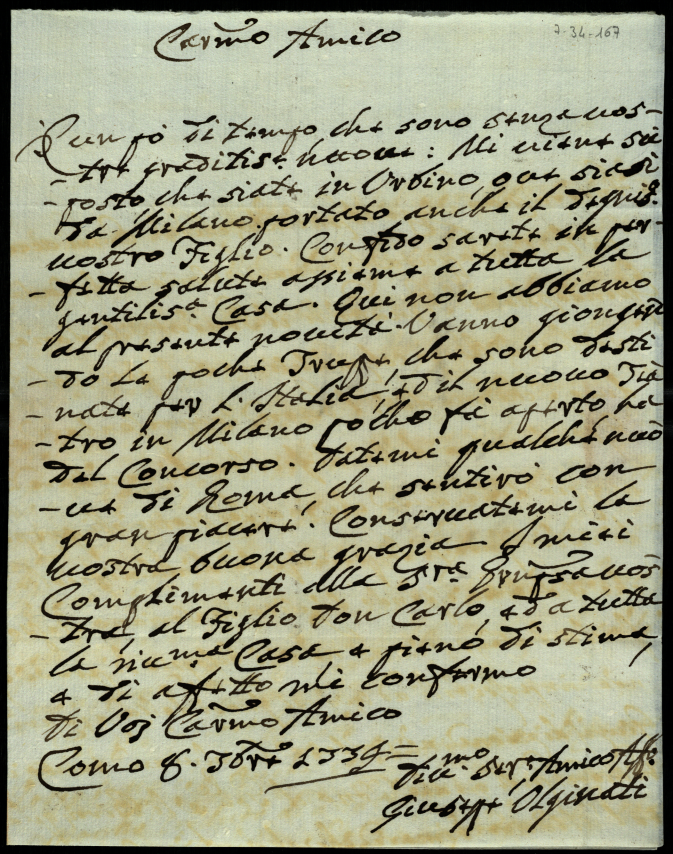 7-34-167
Carmo Amico
È un pò di tempo che sono senza vos-
-tre graditiss.e nuove: Mi viene sù
-posto che siate in Urbino, ove siasi
da Milano portato anche il degniss.o
vostro Figlio. Confido sarete in per-
-fetta salute assieme a tutta la
gentiliss.a Casa. Qui non abbiamo
al presente novità. Vanno giongen
-do le poche Truppe che sono desti
-nate per l'Italia, ed il nuovo Tea
-tro in Milano poche fà aperto, hà
del Concorso. Datemi qualche nuo
-va di Roma, che sentirò con
gran piacere. Conservatemi la
vostra buona grazia. I miei
Complimenti alla Sra vos
-tra, al Figlio Don Carlo, ed a tutta
la Casa e pieno di stima,
e di affetto mi confermo
di Voi Carmo Amico
Como 8. 7bre
Amico
Giuseppe Olginati